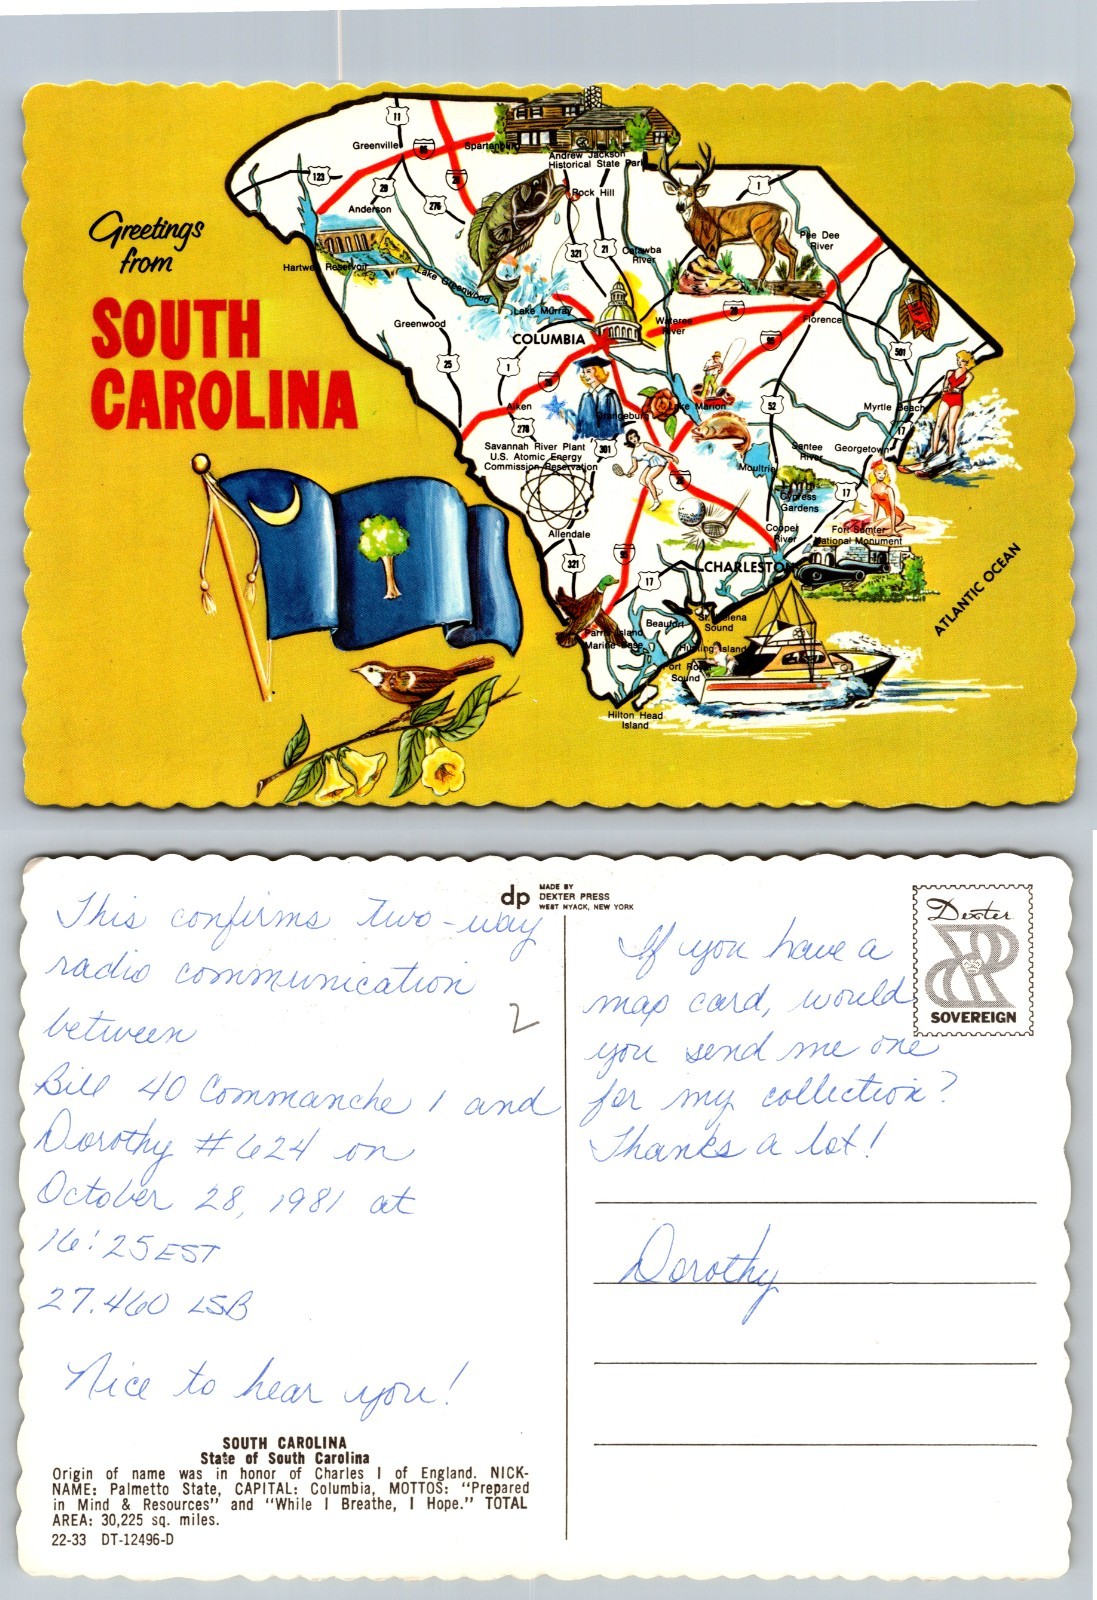 Greetings
from
SOUTH
CAROLINA
11
Greenville
85
Spartanburg
Andrew Jackson
Historical State Park
123
29
26
276
Rock Hill
1
Anderson
Pee Dee
River
321
21
Catawba
River
Hartwell Reservoir
Lake Greenwood
Lake Murray
Wateree
River
20
Florence
Greenwood
COLUMBIA
95
501
25
1
20
Aiken
278
Orangeburg
Lake Marion
52
Myrtle Beach
17
Savannah River Plant
U.S. Atomic Energy
Commission Reservation
301
Santee
River
Georgetown
Moultrie
26
17
Cypress
Gardens
Allendale
Cooper
River
Fort Sumter
National Monument
321
95
17
CHARLESTON
ATLANTIC OCEAN
Beaufort
St. Helena
Sound
Parris Island
Marine Base
Hunting Island
Port Royal
Sound
Hilton Head
Island
dp
MADE BY
DEXTER PRESS
WEST NYACK, NEW YORK
This confirms two-way
radio communication
between
Bill 40 Commanche 1 and
Dorothy #624 on
October 28, 1981 at
16:25 EST
27.460 LSB
Nice to hear you!
2
SOUTH CAROLINA
State of South Carolina
Origin of name was in honor of Charles I of England. NICK-
NAME: Palmetto State, CAPITAL: Columbia, MOTTOS: "Prepared
in Mind & Resources" and "While I Breathe, I Hope." TOTAL
AREA: 30,225 sq. miles.
22-33 DT-12496-D
Dexter
SOVEREIGN
If you have a
map card, would
you send me one
for my collection?
Thanks a lot!
Dorothy